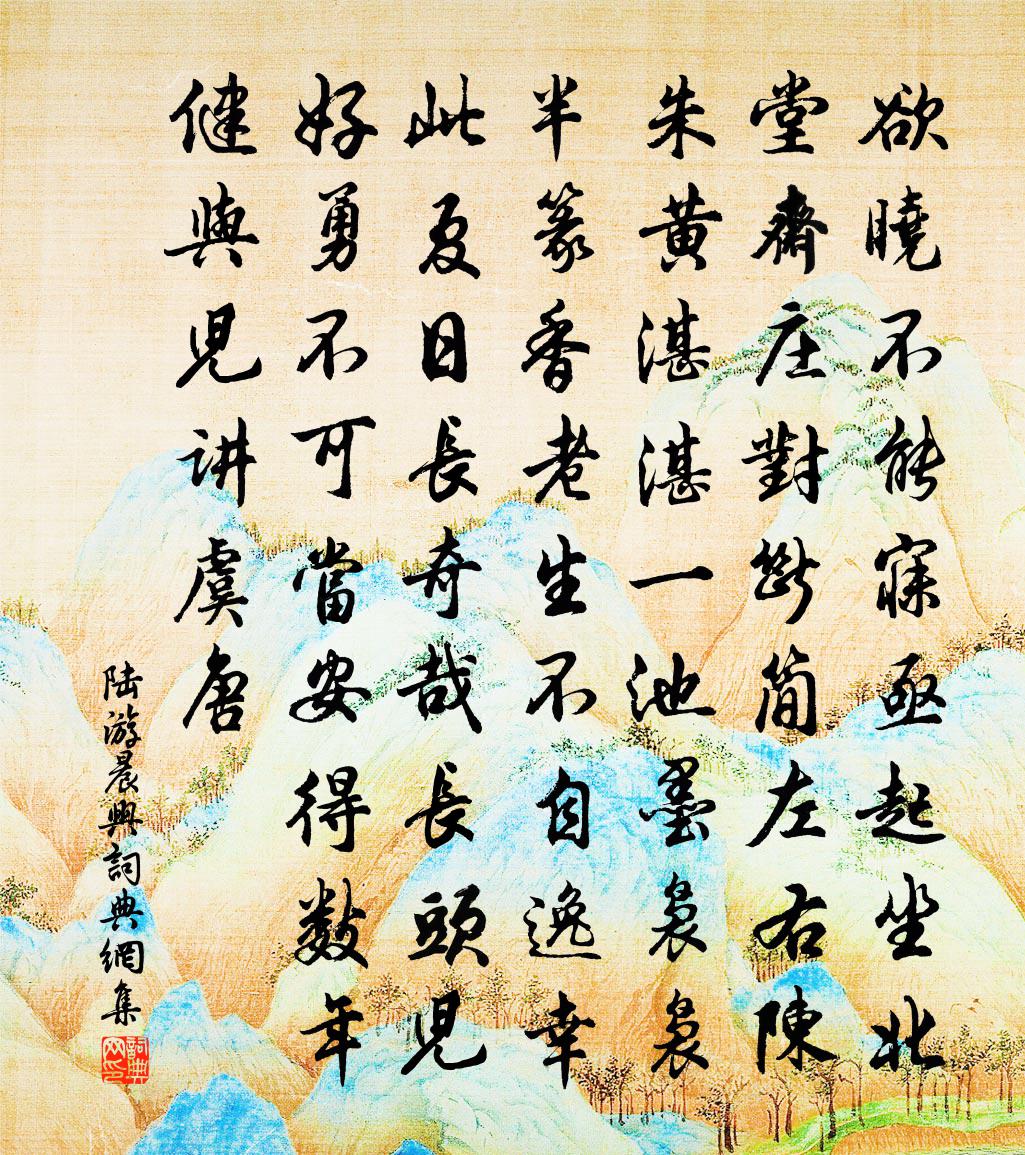 欲曉不能寐亟起坐北
堂齋庄對斷簡左右陳
朱黃湛湛一池墨裊裊
半篆香老生不自逸幸
此夏日長奇哉長頭兒
好勇不可當安得數年
健與兒讲虞唐
陸游晨興詞典網集
詞典网印